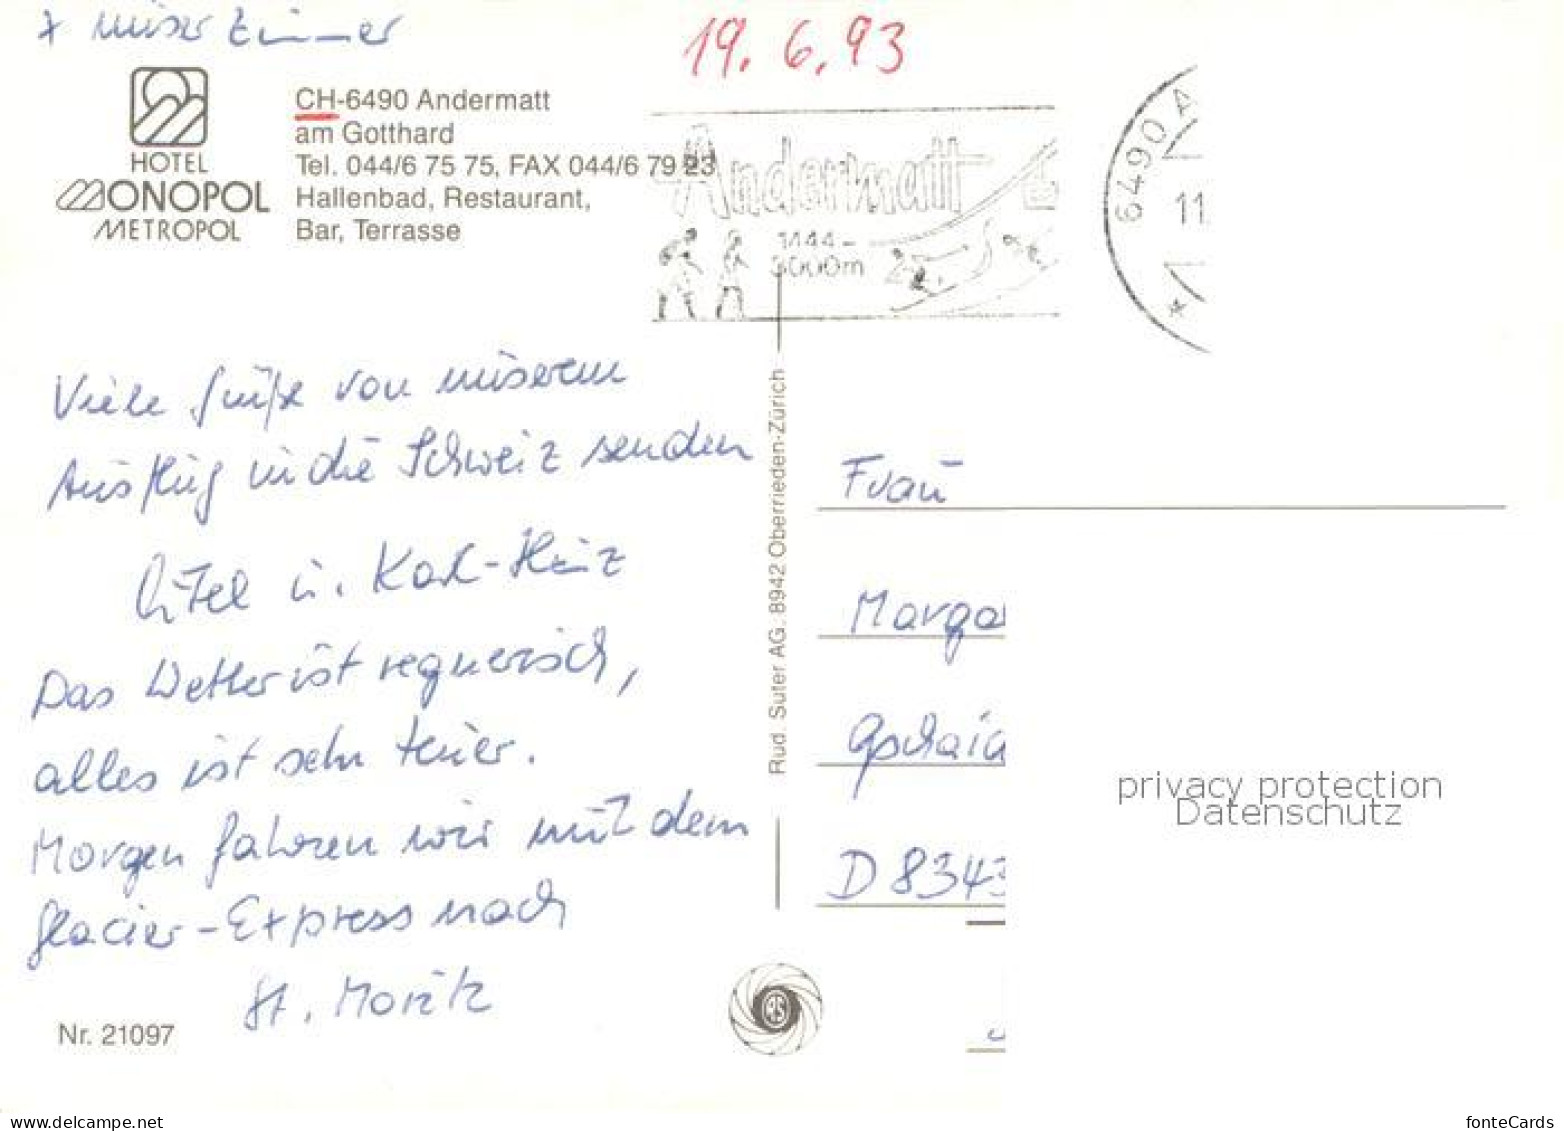 x unser Zimmer
19.6.93
HOTEL
MONOPOL
METROPOL
CH-6490 Andermatt
am Gotthard
Tel. 044/6 75 75, FAX 044/6 79 23
Hallenbad, Restaurant,
Bar, Terrasse
Andermatt
1444-
3000m
6490 A
11.
Viele Grüße von unserem
Ausflug in die Schweiz senden
u. Karl-Heinz
Das Wetter ist regnerisch,
alles ist sehr teuer.
Morgen fahren wir mit dem
Glacier-Express nach
St. Moritz
Nr. 21097
Rud. Suter AG, 8942 Oberrieden-Zürich
RS
Frau
Marga
Gschaid
D 8343
privacy protection
Datenschutz
www.delcampe.net
fonteCards